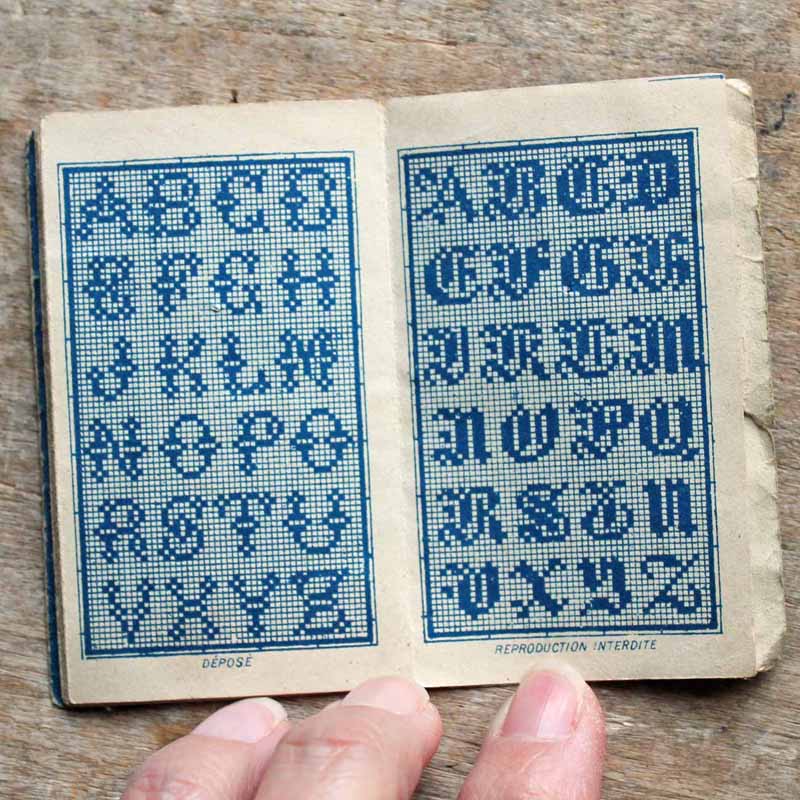 A B C D
E F G H
J K L M
N O P Q
R S T U
V X Y Z
DÉPOSÉ
A B C D
E F G H
J K L M
N O P Q
R S T U
V X Y Z
REPRODUCTION INTERDITE